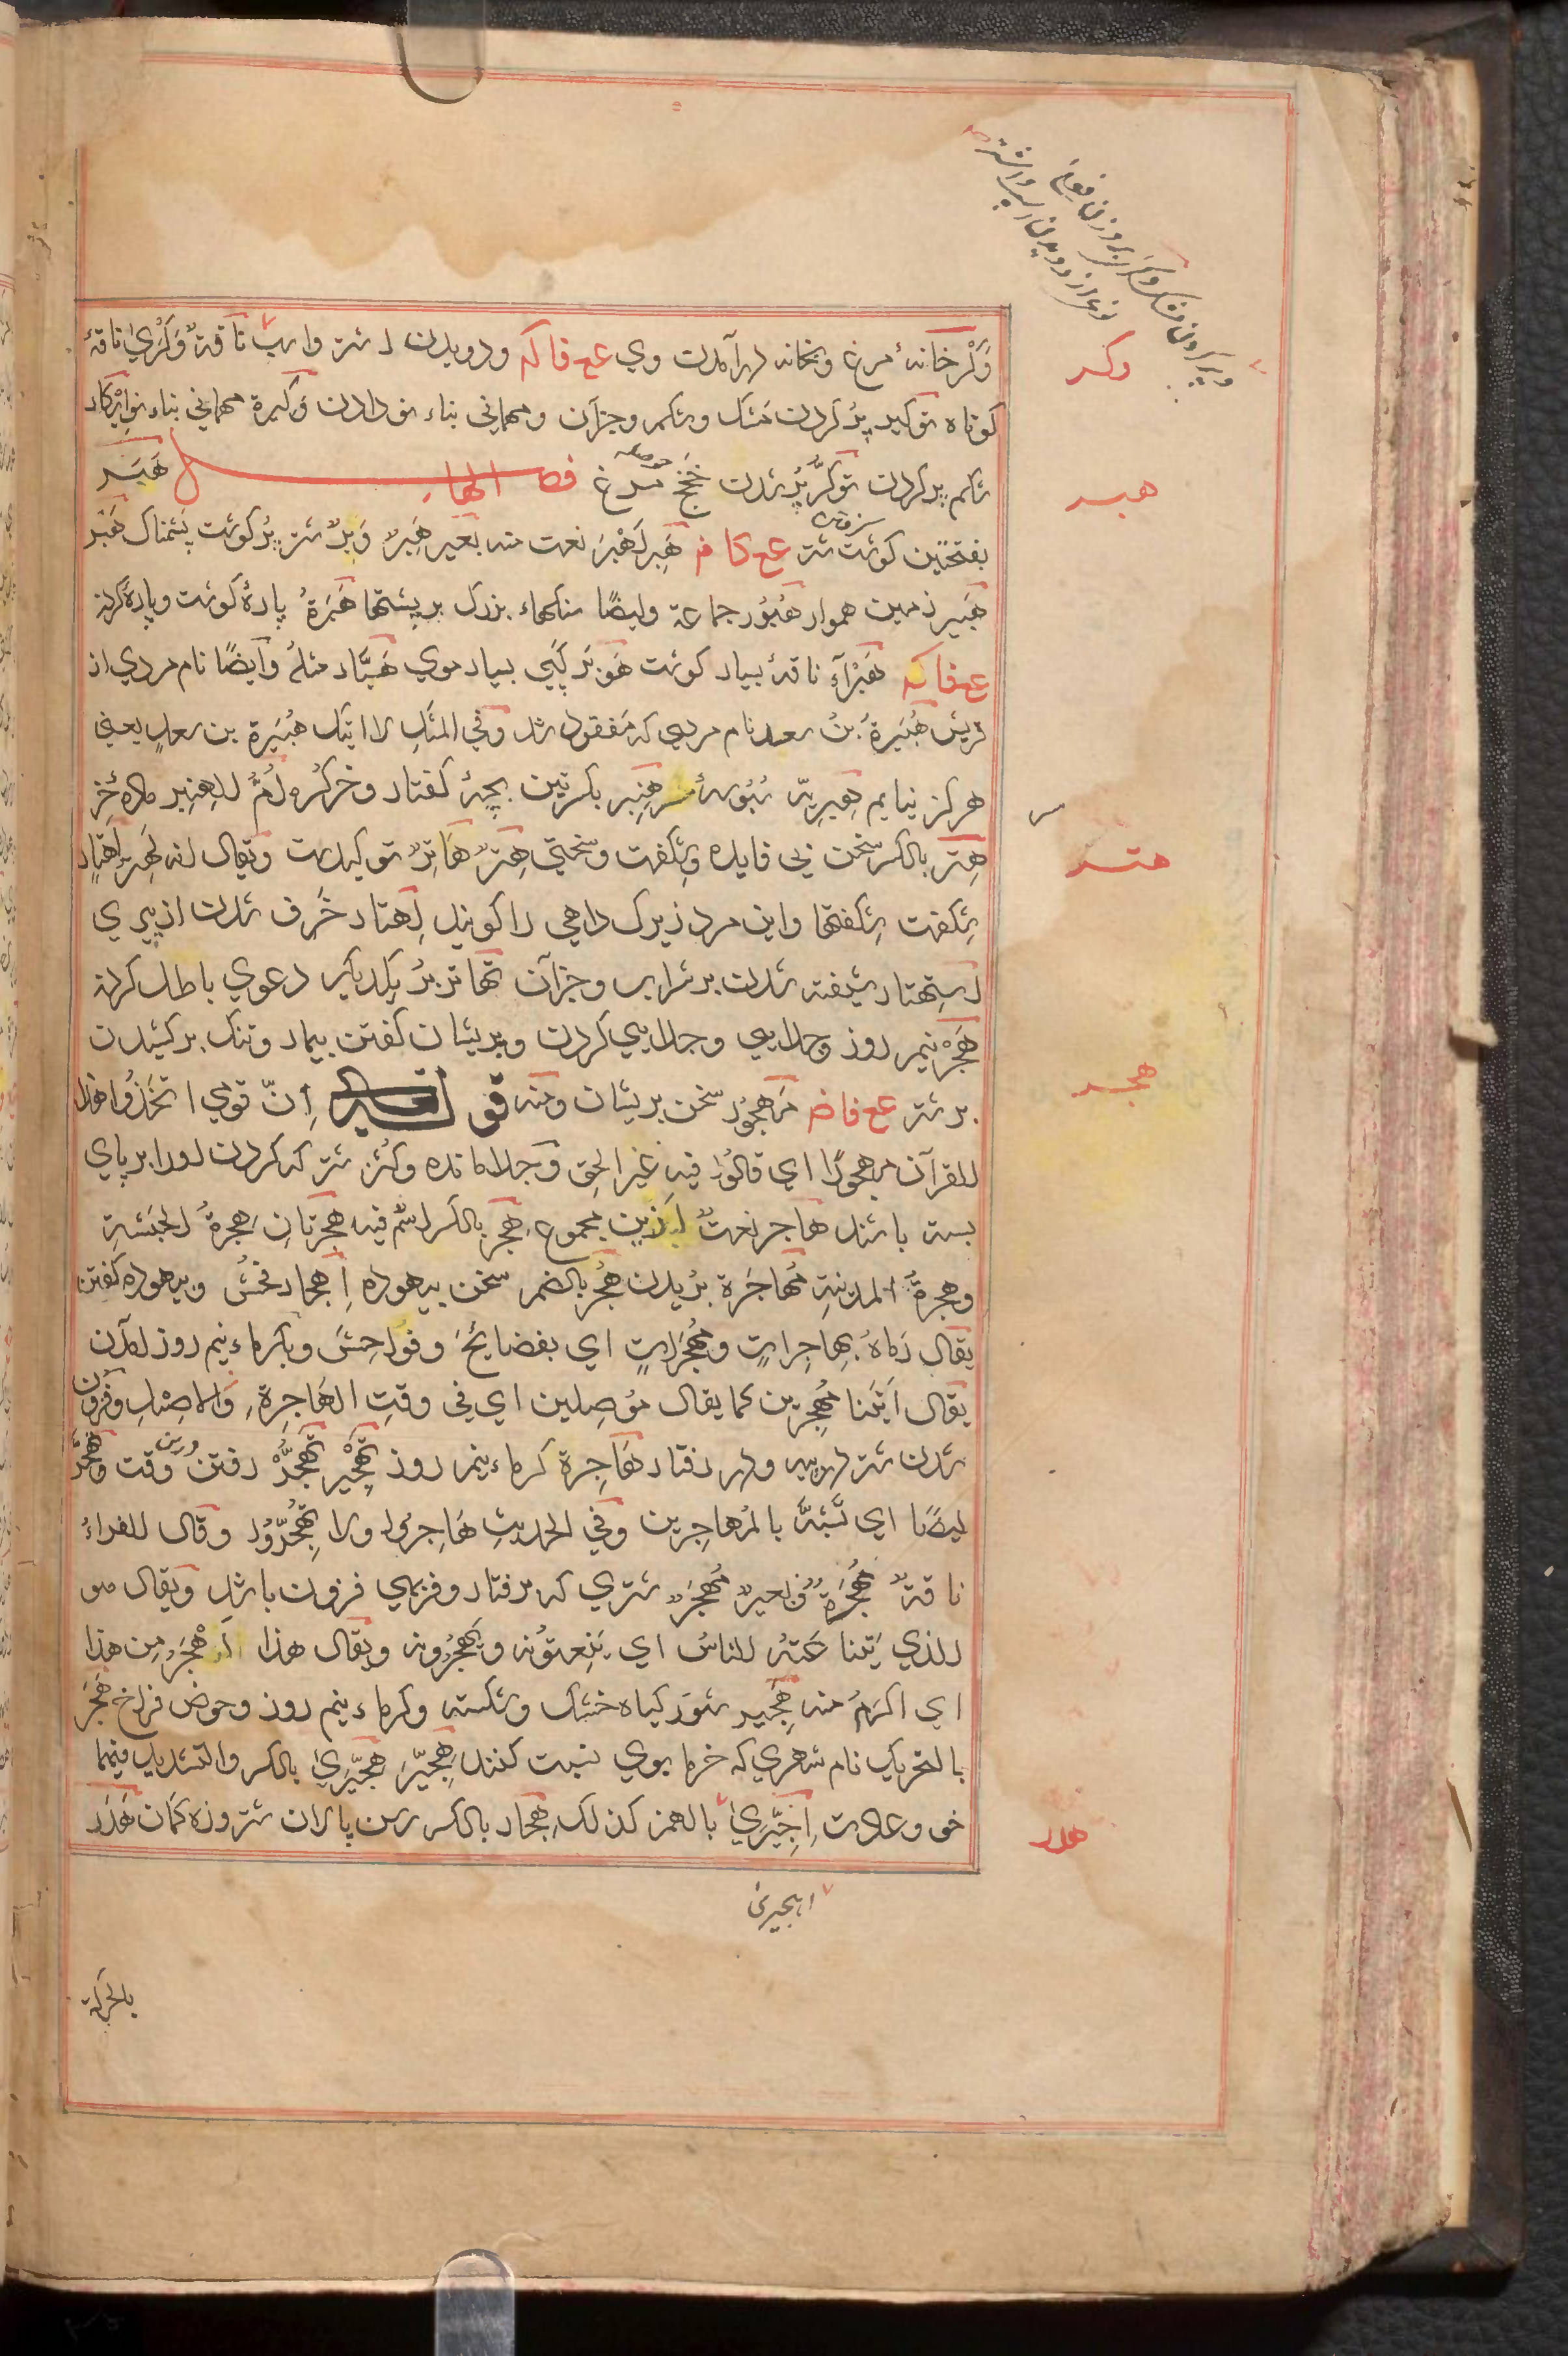 وَكْر خانهٔ مرغ و بخانه درآمدن وی ع ع فا كه و دویدن اشتر و اسب ناقةٌ وَكْرىٰ ناقهٔ
كوتاه توكیر پر كردن مشك و شكم و جز آن و مهمانی بناء نو دادن وَكیرة مهمانی بناء نو ایكار
شكم پر كردن توكّر پر شدن مرغ فصل الهاء هَبَر
بفتحتین كوشت شتر ع ع كا ف هَبِر نعت منه بعیر هَبِرٌ وَبِرٌ شتر پر كوشت پشمناك هَبْر
هَبیر زمین هموار هُبُور جماعة وایضًا سنكهاء بزرك بر پشتها هَبْرَةٌ پارهٔ كوشت و پاره كردن
ع ع فا كه هَبْرَآءُ ناقهٔ بسیار كوشت هَوْبَر كپی بسیار موی هَبَّار مثلهُ وایضًا نام مردی از
قریش هُبَیْرَةُ بنُ سعد نام مردی كه مفقود شد وفی المثل لا اتیك هُبَیْرَة بن سعدٍ یعنی
هركز نیایم هِبْرِیَة سبوسهٔ سر هِنْبِر بكسرتین بچهٔ كفتار و خر كره اُمُّ الهِنْبِر ماده خر
هِتر بالكسر سخن بی فایده و شكفت و سختی هِترٌ هَاتِرٌ توكیدست ویقال انه لَهِتر اَهتارٍ
شكفت شكفتها و این مرد زیرك داهی را كویند اِهتار خَرِف شدن از پیری
اِستهتار شیفته شدن بر شراب و جز آن تهاتر بر یكدیكر دعوی باطل كردن
هَجْر نیم روز و جدایی و جدایی كردن و پریشان كفتن بیمار و تنك بر كشیدن
بر شتر ع ع فا ضم مَهجُور سخن پریشان ومنه ق اِنّ قومی اتخذوا هذا
القرآن مهجورًا ای قالوا فیه غیر الحق و جدا مانده و كشن شتر كه كردن او را بر پای
بسته باشند هَاجر نعتٌ مجموع هِجر بالكسر اسم فیه هِجْرتانِ هجرةُ الحبشةِ
وهجرةُ المدینةِ مُهاجَرة بریدن هُجر بالضم سخن بیهوده اِهجار فحش و بیهوده كفتن
یقال رَمَاهُ بِهاجِراتٍ ومُهْجِراتٍ ای بفضایحَ و فواحِشَ و بكرماء نیم روز آمدن
یقال اَتَیْنا مُهْجِرین كما یقال مُوصِلین ای فی وقتِ الهَاجِرةِ والاصیل و افزون
شدن شتر و در رفتار هَاجِرة كرماء نیم روز تَهْجیر تَهَجُّر رفتن درین وقت وتَهَجُّر
ایضًا ای تَشَبَّهَ بالمُهاجِرین وفی الحدیثِ هَاجِرُوا ولا تَهَجَّرُوا وقال الفراءُ
ناقةٌ مُهْجِرَةٌ و بعیرٌ مُهْجِرٌ شتری كه برفتار و فربهی فزون باشد ویقال هو
الذی یتناعته الناسُ ای یَنعتُونه و یَهجُرُونه ویقال هذا اَهْجَرُ من هذا
ای اكرمُ منه هَجِیر شور كیاه خشك و شكسته و كرماء نیم روز و حوض فراخ هَجَر
بالتحریك نام شهری كه خرما بوی نسبت كنند هِجّیر هِجّیرىٰ بالكسر والتشدید فیهما
خو و عادت اِجّیرىٰ بالهمز كذلك هِجار بالكسر رسن پالان شتر و زه كمان هَدَر
وكر
هبر
هتر
هجر
هدر
اهجیری
بالحركة